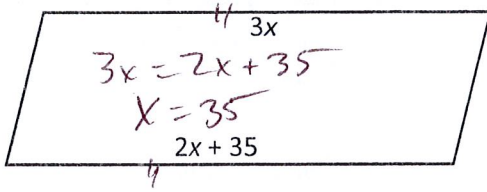 3x
3x = 2x + 35
x = 35
2x + 35